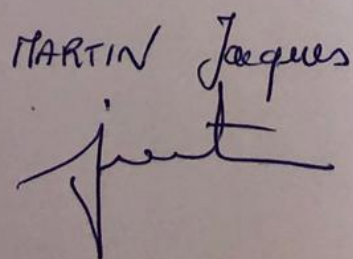 MARTIN Jacques